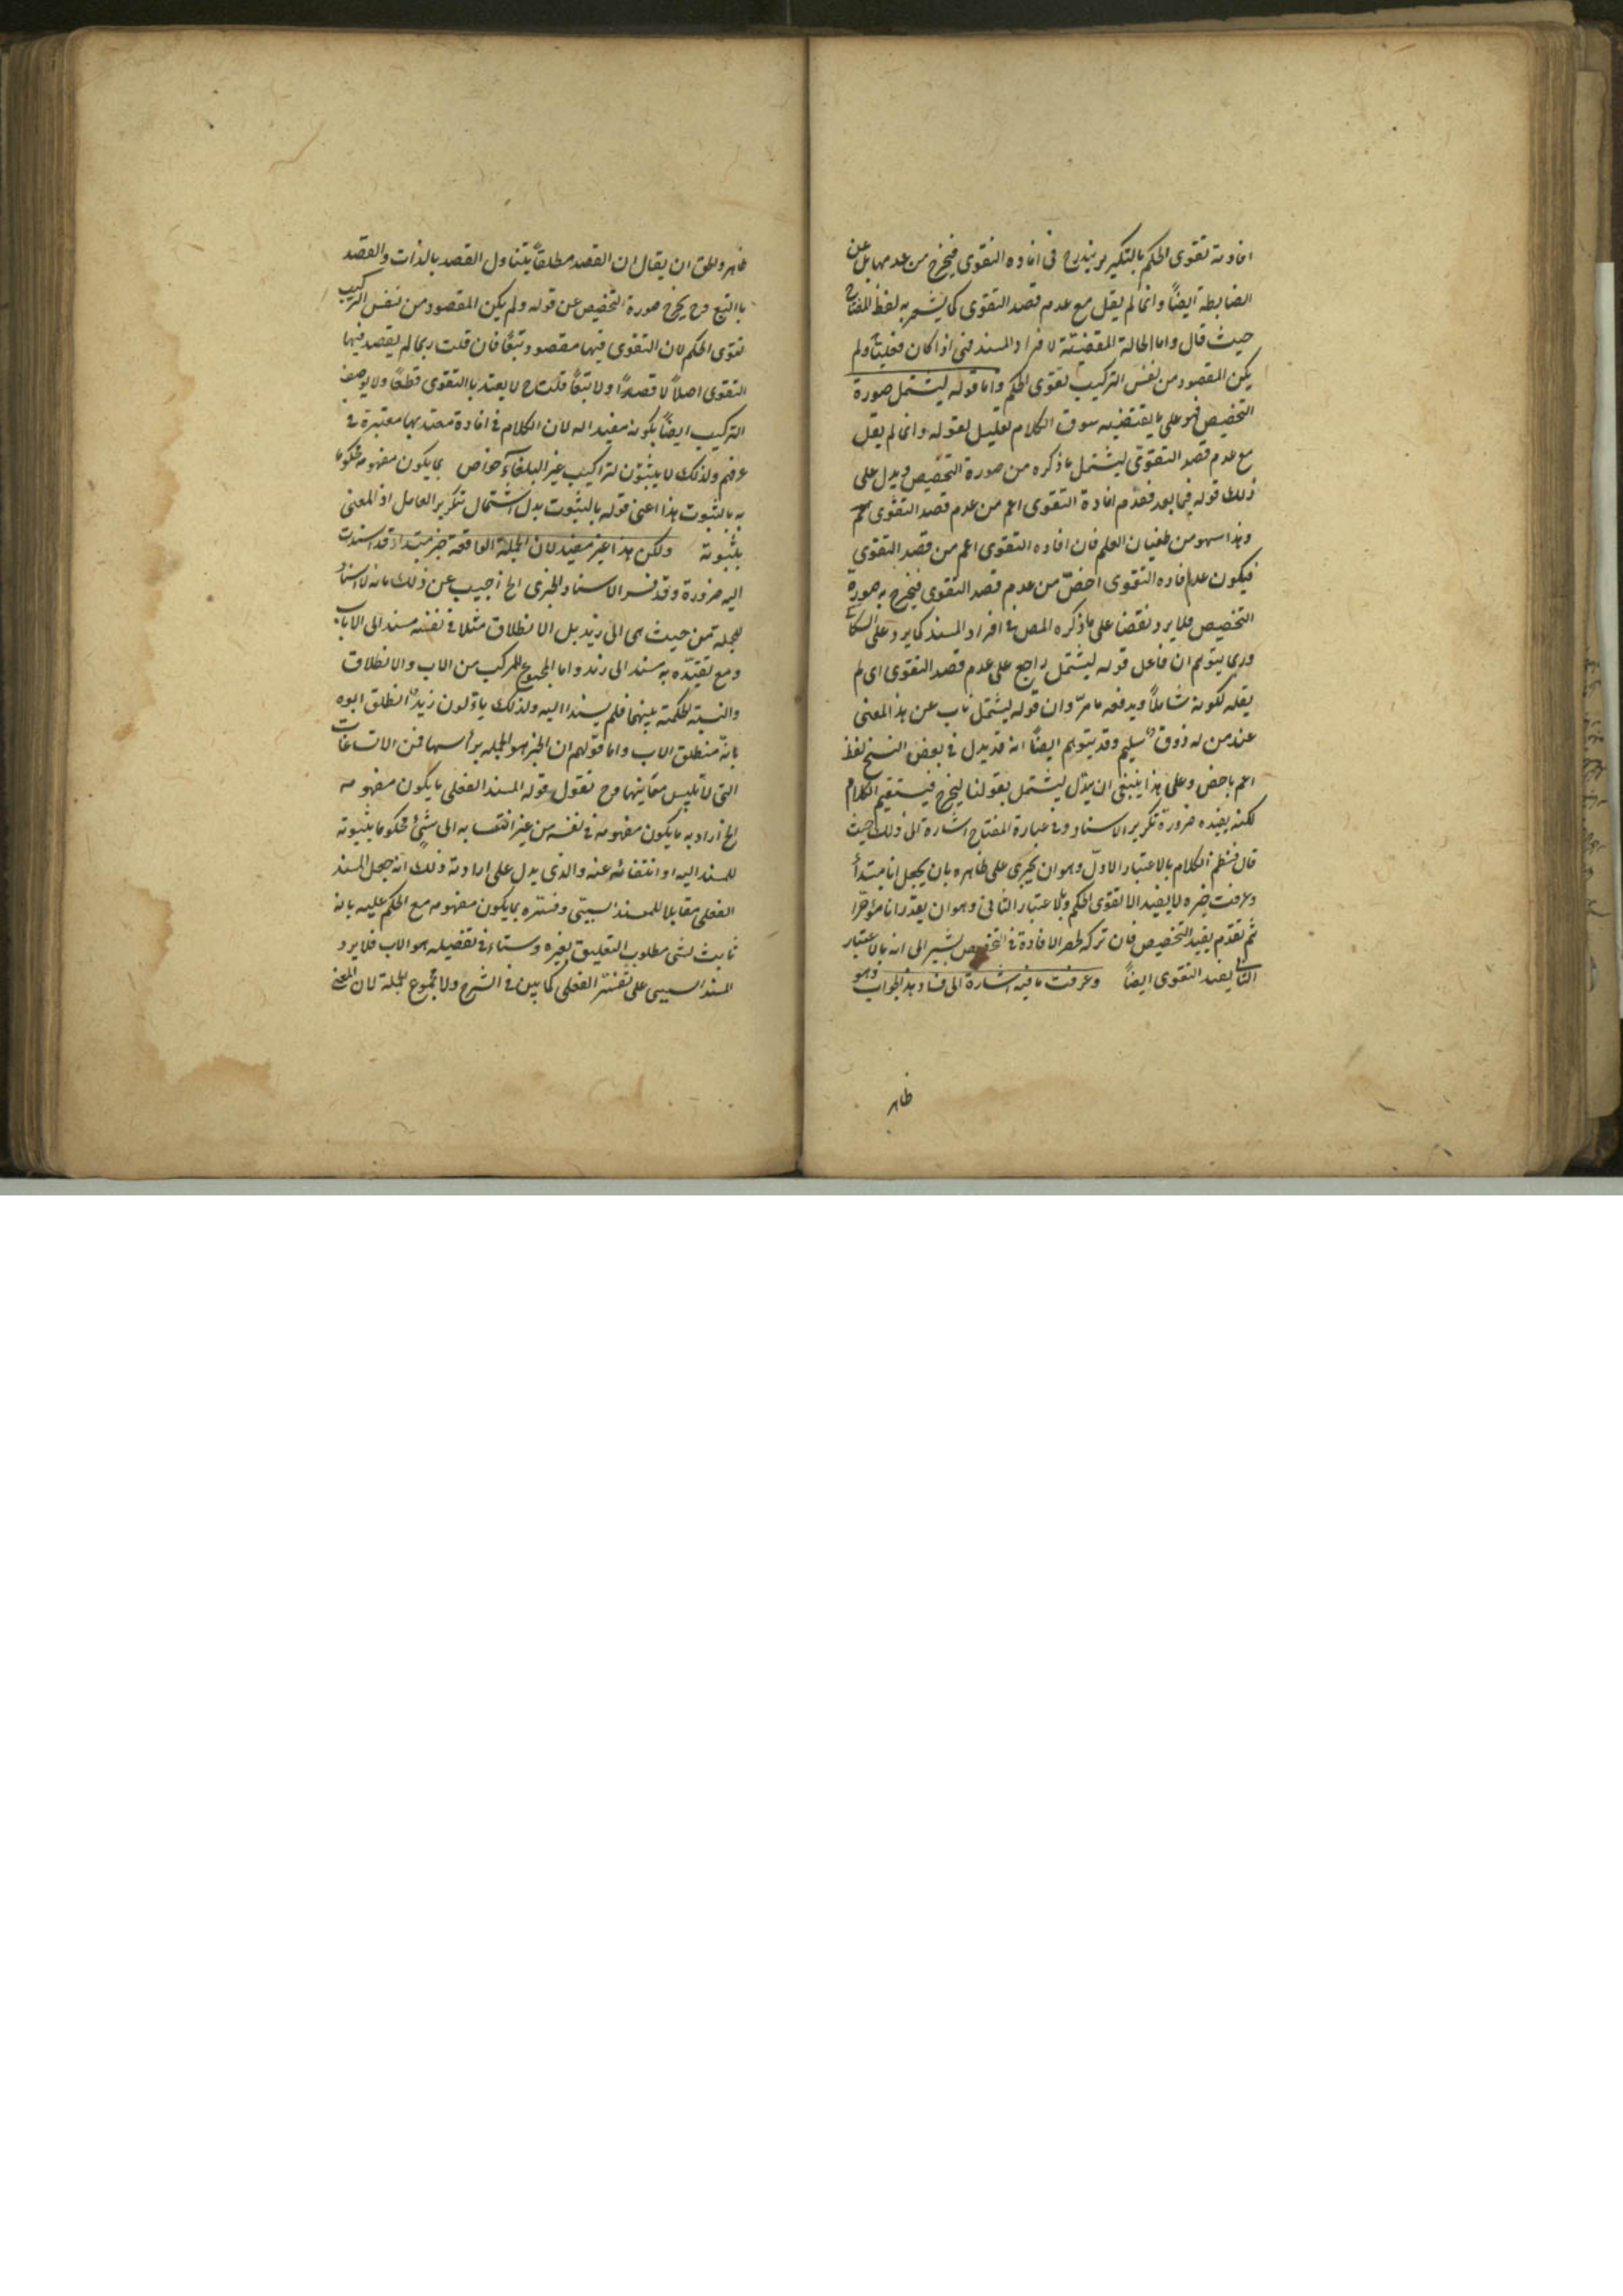 افادته تقوى الحكم بالتكرير يندرج فى افاده التقوى فيخرج من عدمها بل عن
الضابطة ايضاً وانما لم يقل مع عدم قصد التقوى كما يشعر به لفظ المفتاح
حيث قال واما الحالة المقتضية لافراد المسند فهى اذا كان فعلياً ولم
يكن المقصود من نفس التركيب تقوى الحكم واما قوله ليشتمل صورة
التخصيص فهو على ما يقتضيه سوق الكلام تعليل لقوله وانما لم يقل
مع عدم قصد التقوى ليشتمل ما ذكره من صورة التخصيص ويدل على
ذلك قوله فيما بعد فعدم افادة التقوى اعم من عدم قصد التقوى
وهذا سهو من طغيان القلم فان افاده التقوى اعم من قصد التقوى
فيكون عدم افاده التقوى اخصّ من عدم قصد التقوى فيخرج به صورة
التخصيص فلا يرد نقضا على ما ذكره المص فى افراد المسند كما يرد على السكاكى
وربما يتوهم ان فاعل قوله ليشتمل راجع على عدم قصد التقوى اى لم
يقله لكونه شاملاً ويدفعه ما مرّ وان قوله ليشتمل ناب عن هذا المعنى
عند من له ذوق سليم وقد يتوهم ايضاً انه قد يبدل فى بعض النسخ لفظ
اعم باخص وعلى هذا ينبغى ان يبدّل ليشتمل بقولنا ليخرج فيستقيم الكلام
لكنه يفيده ضرورة تكرير الاسناد وفى عبارة المفتاح اشارة الى ذلك حيث
قال فنظم الكلام بالاعتبار الاوّل وهو ان يجرى على ظاهره بان يجعل انا مبتدأ
وعرفت خبره لا يفيد الا تقوى الحكم وبالاعتبار الثانى وهو ان يقدر انا مؤخرا
ثم تقدم يفيد التخصيص فان تركه حصر الافادة فى التخصيص يشير الى انه بالاعتبار
الثانى يفيد التقوى ايضاً وعرفت ما فيه اشارة الى فساد هذا الجواب وهو
ظاهر
ظاهر والحق ان يقال ان القصد مطلقاً يتناول القصد بالذات والقصد
بالتبع وح يخرج صورة التخصيص عن قوله ولم يكن المقصود من نفس التركيب
تقوى الحكم لان التقوى فيها مقصود تبعًا فان قلت ربما لم يقصد فيها
التقوى اصلاً لا قصدًا ولا تبعًا قلت ح لا يعتد بالتقوى قطعًا ولا يوصف
التركيب ايضاً بكونه مفيدا له لان الكلام فى افادة معتد بها معتبرة فى
عرفهم ولذلك لا يثبتون لتراكيب غير البلغاء خواص بما يكون مفهومه محكوما
به بالثبوت هذا اعنى قوله بالثبوت بدل اشتمال بتكرير العامل اذ المعنى
بثبوته ولكن هذا غير مفيد لان الجملة الواقعة خبر مبتدا قد اسندت
اليه ضرورة وقد فسر الاسناد الخبرى الخ اجيب عن ذلك بانه لا اسناد
للجملة من حيث هى الى زيد بل الانطلاق مثلا فى نفسه مسند الى الاب
ومع تقيّده به مسند الى زيد واما المجموع المركب من الاب والانطلاق
والنسبة الحكمية بينهما فلم يسند اليه ولذلك ياوّلون زيد انطلق ابوه
بانّه منطلق الاب واما قولهم ان الخبر هو الجملة برأسها فمن الاتساعات
التى لا تلبس معانيها وح نقول قوله المسند الفعلى ما يكون مفهومه
الخ اراد به ما يكون مفهومه فى نفسه من غير انتسابه الى شئ محكوما بثبوته
للمسند اليه او انتفائه عنه والذى يدل على ارادته ذلك انه جعل المسند
الفعلى مقابلا للمسند السببى وفسره بما يكون مفهومه مع الحكم عليه بانه
ثابت لشئ مطلوب التعليق بغيره وستاء فى تفصيله هو الاب فلا يرد
المسند السببى على تفسير الفعلى كما بين فى الشرح ولا مجموع الجملة لان المعنى